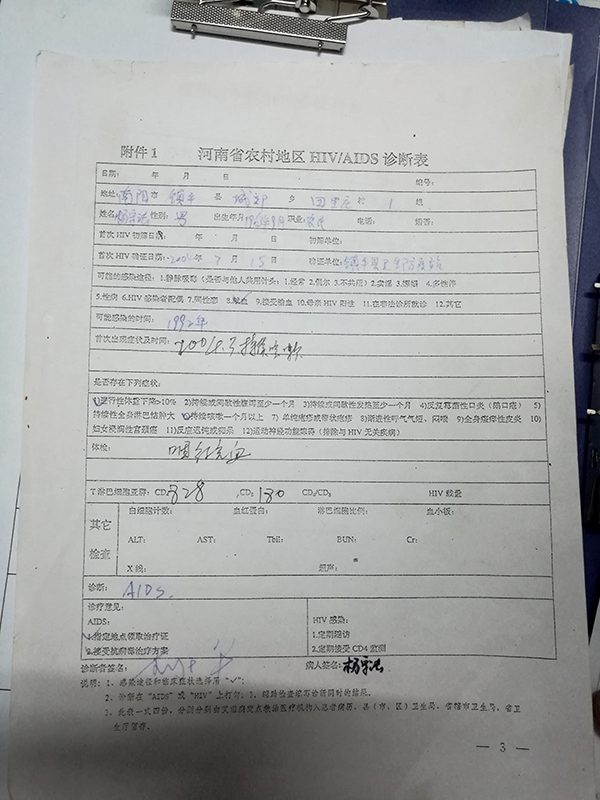 附件1 河南省农村地区 HIV/AIDS 诊断表
日期: 年 月 日 编号:
地址: 南阳市 镇平 县 城郊 乡 村 1 组
姓名: 性别: 男 出生年月 职业: 农民 电话: 婚否:
首次 HIV 初筛日期: 年 月 日 初筛单位:
首次 HIV 验证日期: 年 7 月 15 日 验证单位: 镇平县卫生防疫站
可能的感染途径: 1.静脉吸毒(是否与他人共用针头: 1.经常 2.偶尔 3.不共用) 2.卖淫 3.嫖娼 4.多性伴
5.性病 6.HIV 感染者配偶 7.同性恋 8.献血 9.接受输血 10.母亲 HIV 阳性 11.在非法诊所就诊 12.其它
可能感染的时间: 1992年
首次出现症状及时间: 2004.5 持续咳嗽
是否存在下列症状:
1)进行性体重下降>10% 2)持续或间歇性腹泻至少一个月 3)持续或间歇性发热至少一个月 4)反复霉菌性口炎(鹅口疮) 5)
持续性全身淋巴结肿大 6)持续咳嗽一个月以上 7)单纯疱疹或带状疱疹 8)渐进性呼气气短、闷喘 9)全身瘙痒性皮炎 10)
妇女侵病性宫颈癌 11)反应迟钝或痴呆 12)运动神经功能障碍(排除与 HIV 无关疾病)
体检: 咽红充血
T 淋巴细胞亚群: CD4 328 ,CD8: 130 CD4/CD8 HIV 载量
其它
检查
白细胞计数: 血红蛋白: 淋巴细胞比例: 血小板:
ALT: AST: Tbil: BUN: Cr:
X 线: 超声:
诊断: AIDS.
诊疗意见:
AIDS: HIV 感染:
1.指定地点领取治疗证 1.定期随访
2.接受抗病毒治疗方案 2.定期接受 CD4 监测
诊断者签名: 病人签名:
说明: 1、感染途径和临床症状选择用“√”;
2、分别在“AIDS”或“HIV”上打勾; 3、辅助检查填写诊断同时的结果。
— 3 —